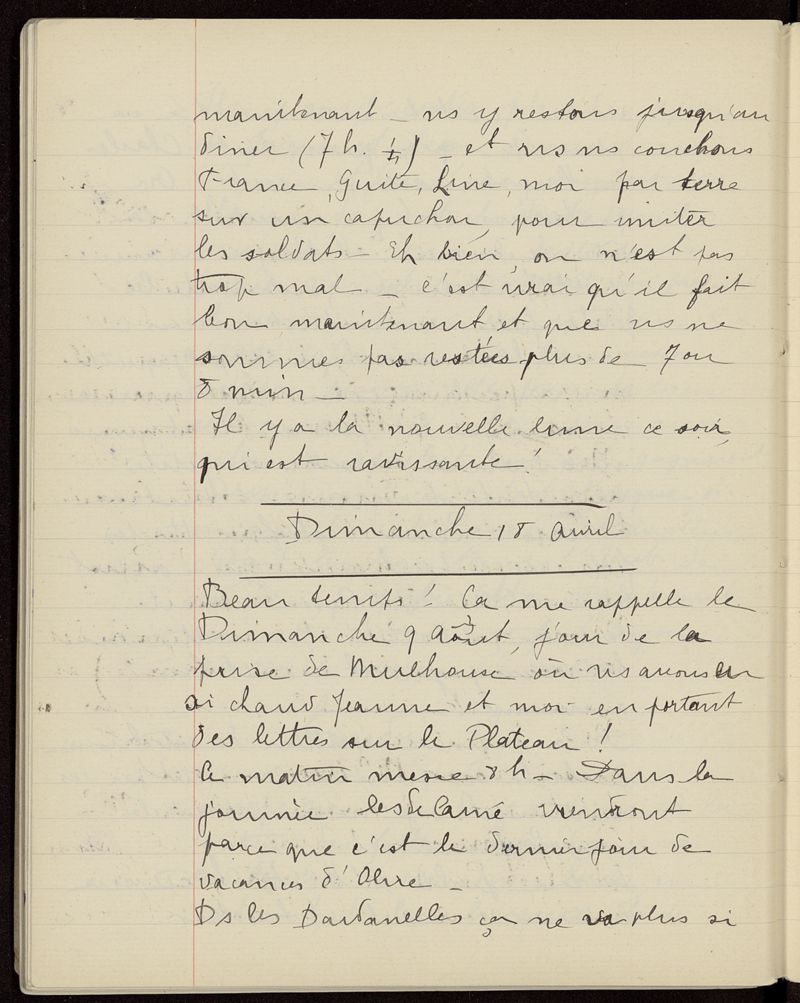 maintenant _ ns y restons jusqu'au
dîner (7 h. ¼) _ et ns ns couchons
France, Guite, Line, moi par terre
sur un capuchon, pour imiter
les soldats _ Eh bien, on n'est pas
trop mal _ c'est vrai qu'il fait
bon maintenant et que ns ne
sommes pas restées plus de 7 ou
8 min _
Il y a la nouvelle lune ce soir,
qui est ravissante !
Dimanche 18 avril
Beau temps ! Ça me rappelle le
Dimanche 9 août, jour de la
prise de Mulhouse où ns avons eu
si chaud Jeanne et moi en portant
des lettres sur le Plateau !
Ce matin messe 8 h _ Dans la
journée les viendront
parce que c'est le dernier jour de
vacances d'
Ds les Dardanelles ça ne va plus si